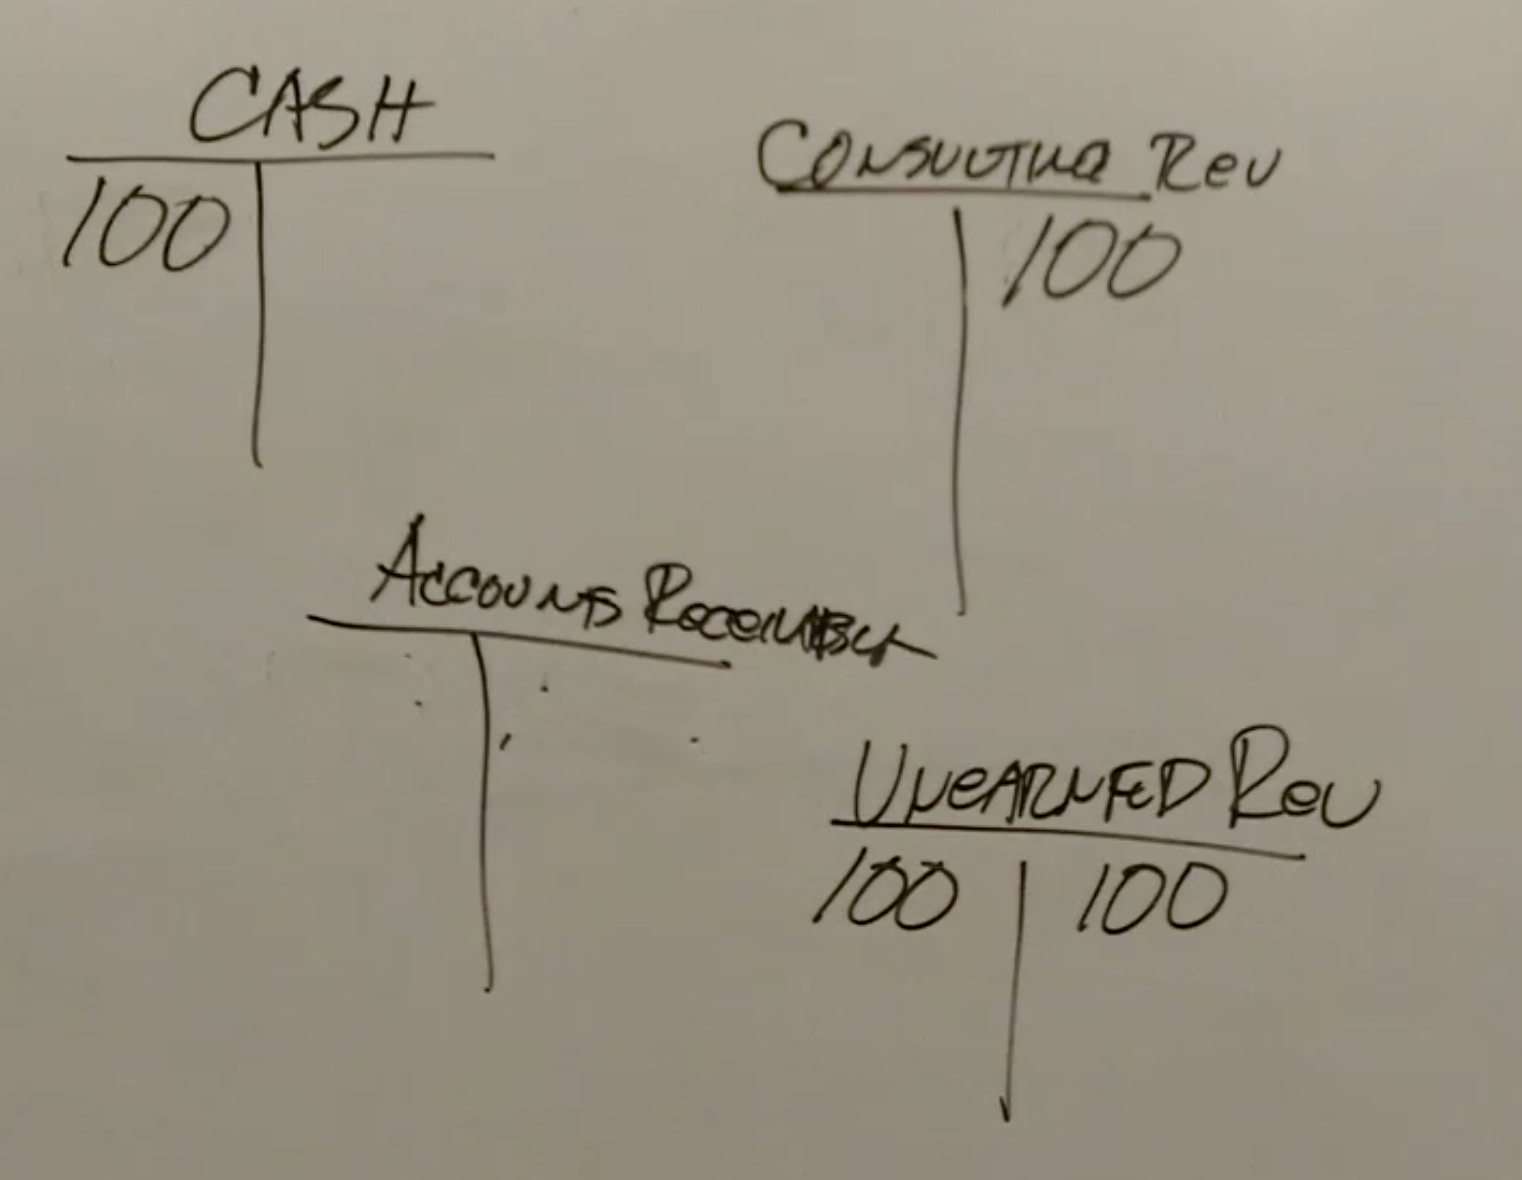 CASH
100
CONSULTING Rev
100
ACCOUNTS RECEIVABLE
UNEARNED Rev
100 100